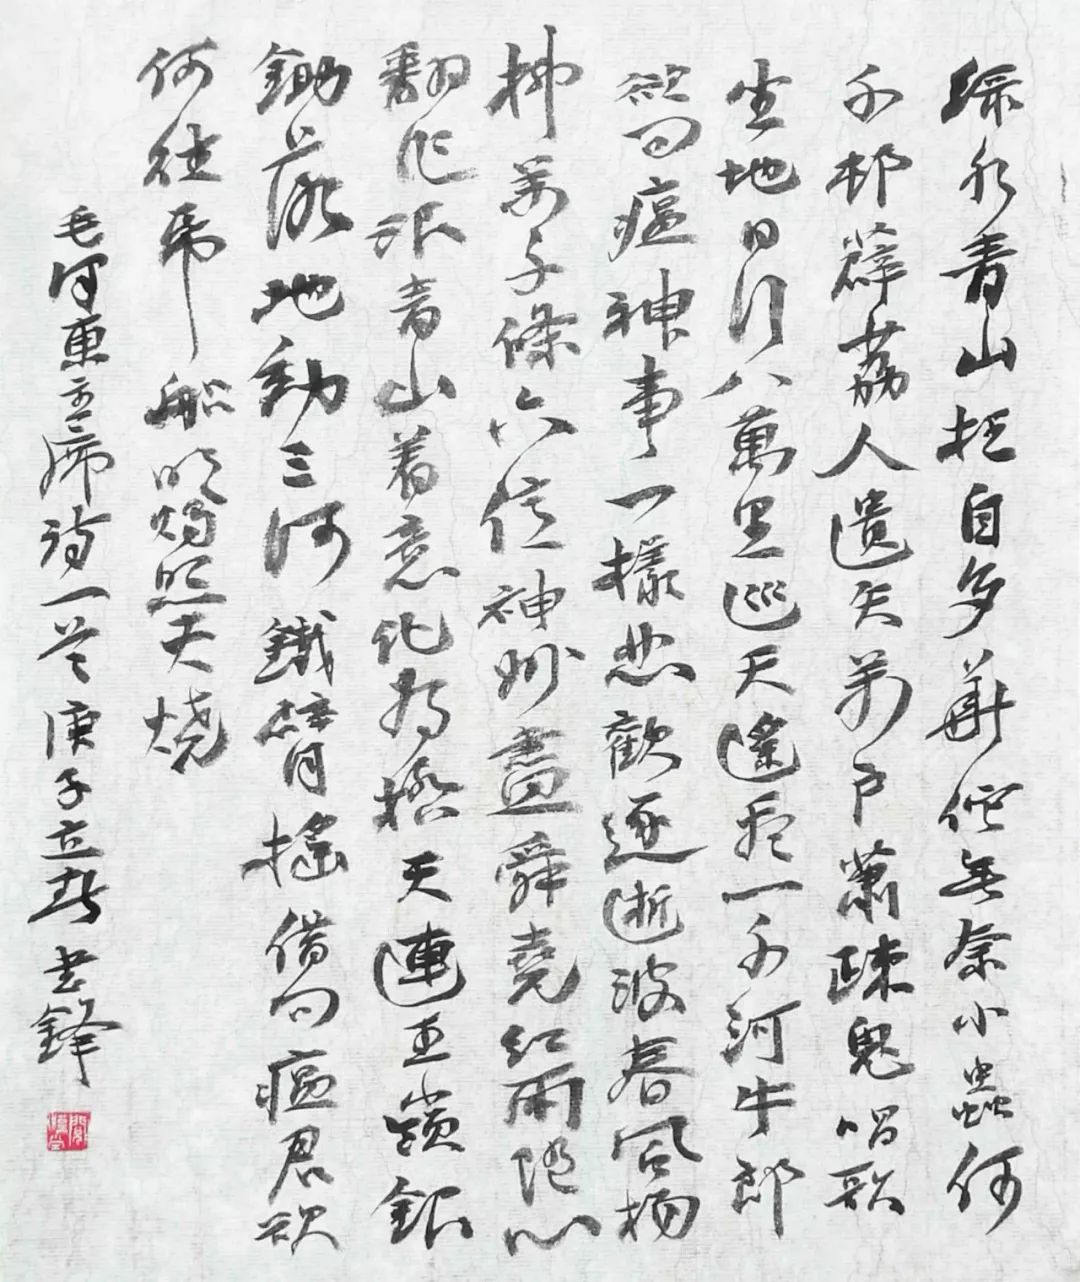 綠水青山枉自多華佗無奈小蟲何
千邨薜荔人遺矢万戶蕭疎鬼唱歌
坐地日行八萬里巡天遙看一千河牛郎
欲問瘟神事一樣悲歡逐逝波春風楊
柳萬千條六億神州盡舜堯紅雨隨心
翻作浪青山着意化為橋天連五嶺銀
鋤落地動三河鐵臂搖借問瘟君欲
何往紙船明燭照天燒
毛澤東主席詩一首庚子立秋鋒